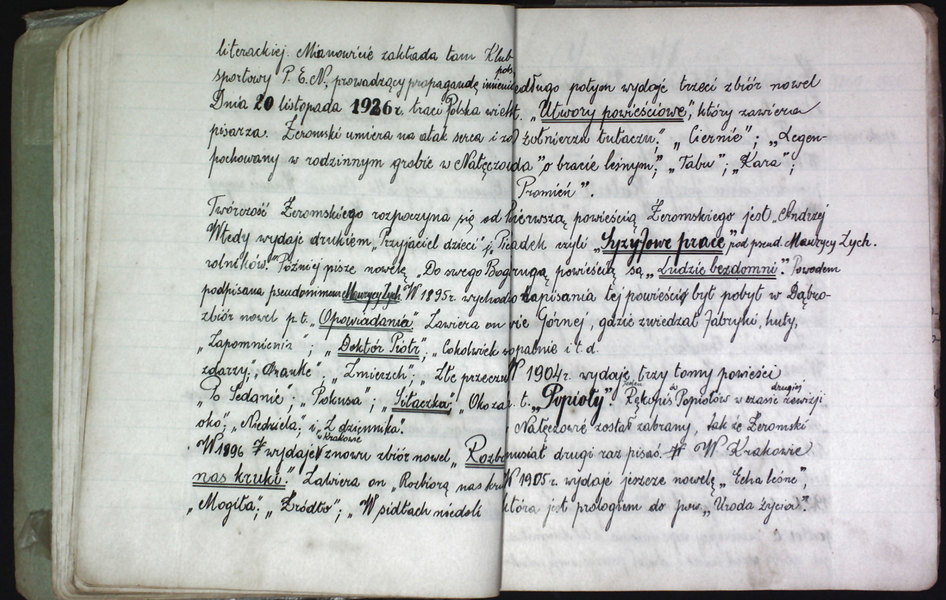 literackiej. Mianowicie zakłada tam Klub
sportowy P.E.N., prowadzący propagandę imienia pols.
Dnia 20 listopada 1926 r. traci Polska wielk.
pisarza. Żeromski umiera na atak serca i zo
pochowany w rodzinnym grobie w Nałęczo
Twórczość Żeromskiego rozpoczyna się od
Wtedy wydaje drukiem „Przyjaciel dzieci” i
rolników.” Później pisze nowelę „Do swego Boga
podpisana pseudonimem Maurycy Zych. W 1895 r. wychodzi
zbiór nowel p.t. „Opowiadania” Zawiera on
„Zapomnienia”; „Doktór Piotr”, „Cokolwiek
zdarzy, „Ananke”; „Zmierzch”; „Złe przeczu
„Po Sedanie”; „Pokusa; „Siłaczka; „Oko za
oko; „Niedziela; i „Z dziennika”.
W 1896 r wydaje w Krakowie znowu zbiór nowel „Rozdz
nas kruki.” Zawiera on „Rozbiorą nas kru
„Mogiła”; „Źródło”; „W sidłach niedoli
edługo potym wydaje trzeci zbiór nowel
„Utwory powieściowe”, który zawiera
żołnierzu tułaczu”, „Ciernie”; „Legen-
da „o bracie leśnym”; „Tabu”; „Kara”;
Promień”.
Pierwszą powieścią Żeromskiego jest „Andrzej
Radek czyli „Syzyfowe prace” pod pseud. Maurycy Zych.
rugą powieścią są „Ludzie bezdomni”. Powodem
napisania tej powieści był pobyt w Dąbro-
wie Górnej, gdzie zwiedzał fabryki, huty,
kopalnie i t.d.
W 1904 r. wydaje trzy tomy powieści
. t. „Popioły”. Jeden Rękopis w Popiołów w czasie drugiej rewizji
Nałęczowie został zabrany, tak że Żeromski
musiał drugi raz pisać. W Krakowie
W 1905 r. wydaje jeszcze nowelę „Echa leśne”,
która jest prologiem do pow. „Uroda Życia”.